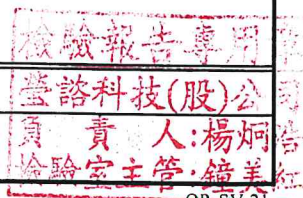 檢驗報告專用章
瑩諮科技(股)公司
負責人:楊炯
檢驗室主管:鐘美紅
QP-SV-21